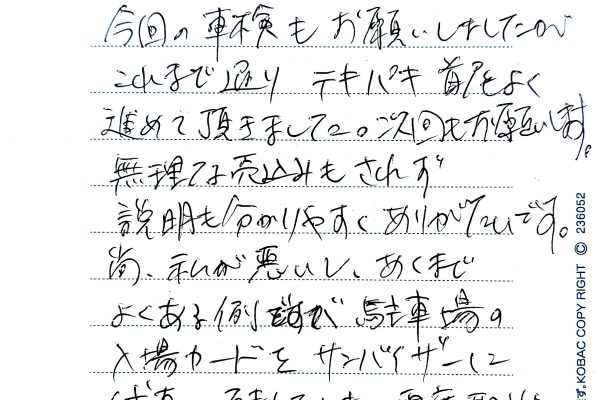 今回の車検もお願いしましたが
これまで通り テキパキ 首尾よく
進めて頂きました。次回もお願いします。
無理な売込みもされず
説明も分かりやすく ありがたいです。
尚、私が悪いし、あくまで
よくある例ですが 駐車場の
入場カードを サンバイザーに
す。KOBAC COPY RIGHT © 236052